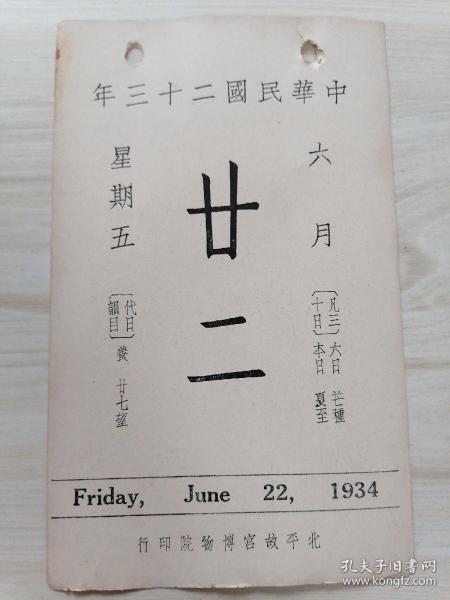 中華民國二十三年
六月
〔凡三十日〕
六日 芒種
本日 夏至
廿二
星期五
〔代日韻目〕養 廿七望
Friday, June 22, 1934
北平故宮博物院印行
孔夫子旧书网
www.kongfz.com